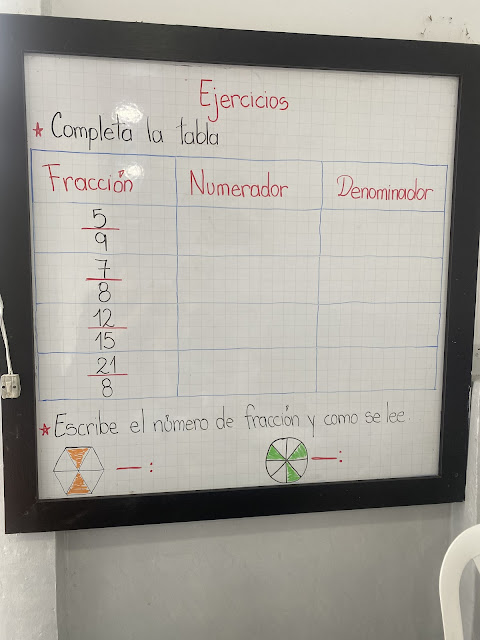 Ejercicios
* Completa la tabla
Fracción Numerador Denominador
5/9
7/8
12/15
21/8
* Escribe el número de fracción y como se lee.
— : — :